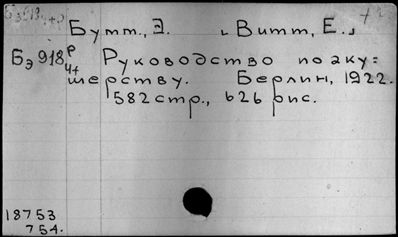 Бумм, Э. [Витт, Е.]
Бэ918 Р/4+ Руководство по аку=
шерству. Берлин, 1922.
582 стр., 626 рис.
18753
754.